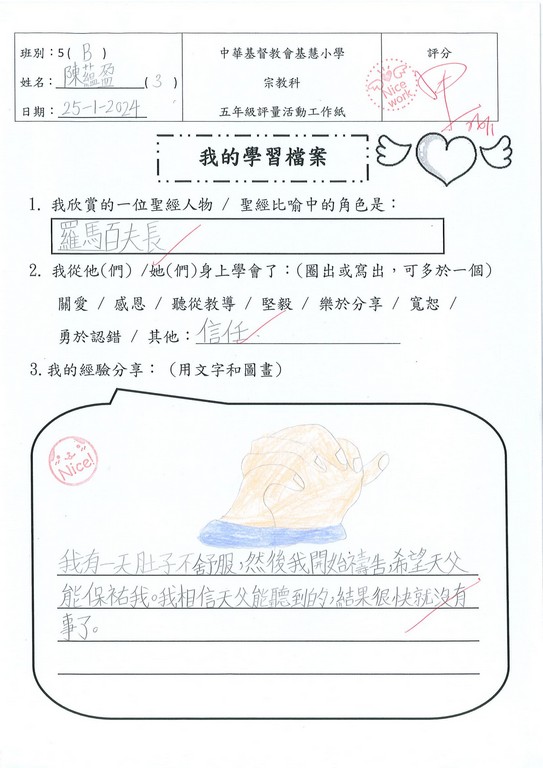 班別：5( B )
姓名：陳蘊盈(3)
日期：25-1-2024
中華基督教會基慧小學
宗教科
五年級評量活動工作紙
評分
Nice work
我的學習檔案
1. 我欣賞的一位聖經人物 / 聖經比喻中的角色是：
羅馬百夫長
2. 我從他(們) /她(們)身上學會了：(圈出或寫出，可多於一個)
關愛 / 感恩 / 聽從教導 / 堅毅 / 樂於分享 / 寬恕 /
勇於認錯 / 其他：信任
3. 我的經驗分享：（用文字和圖畫）
Nice!
我有一天肚子不舒服，然後我開始禱告，希望天父
能保祐我。我相信天父能聽到的，結果很快就沒有
事了。